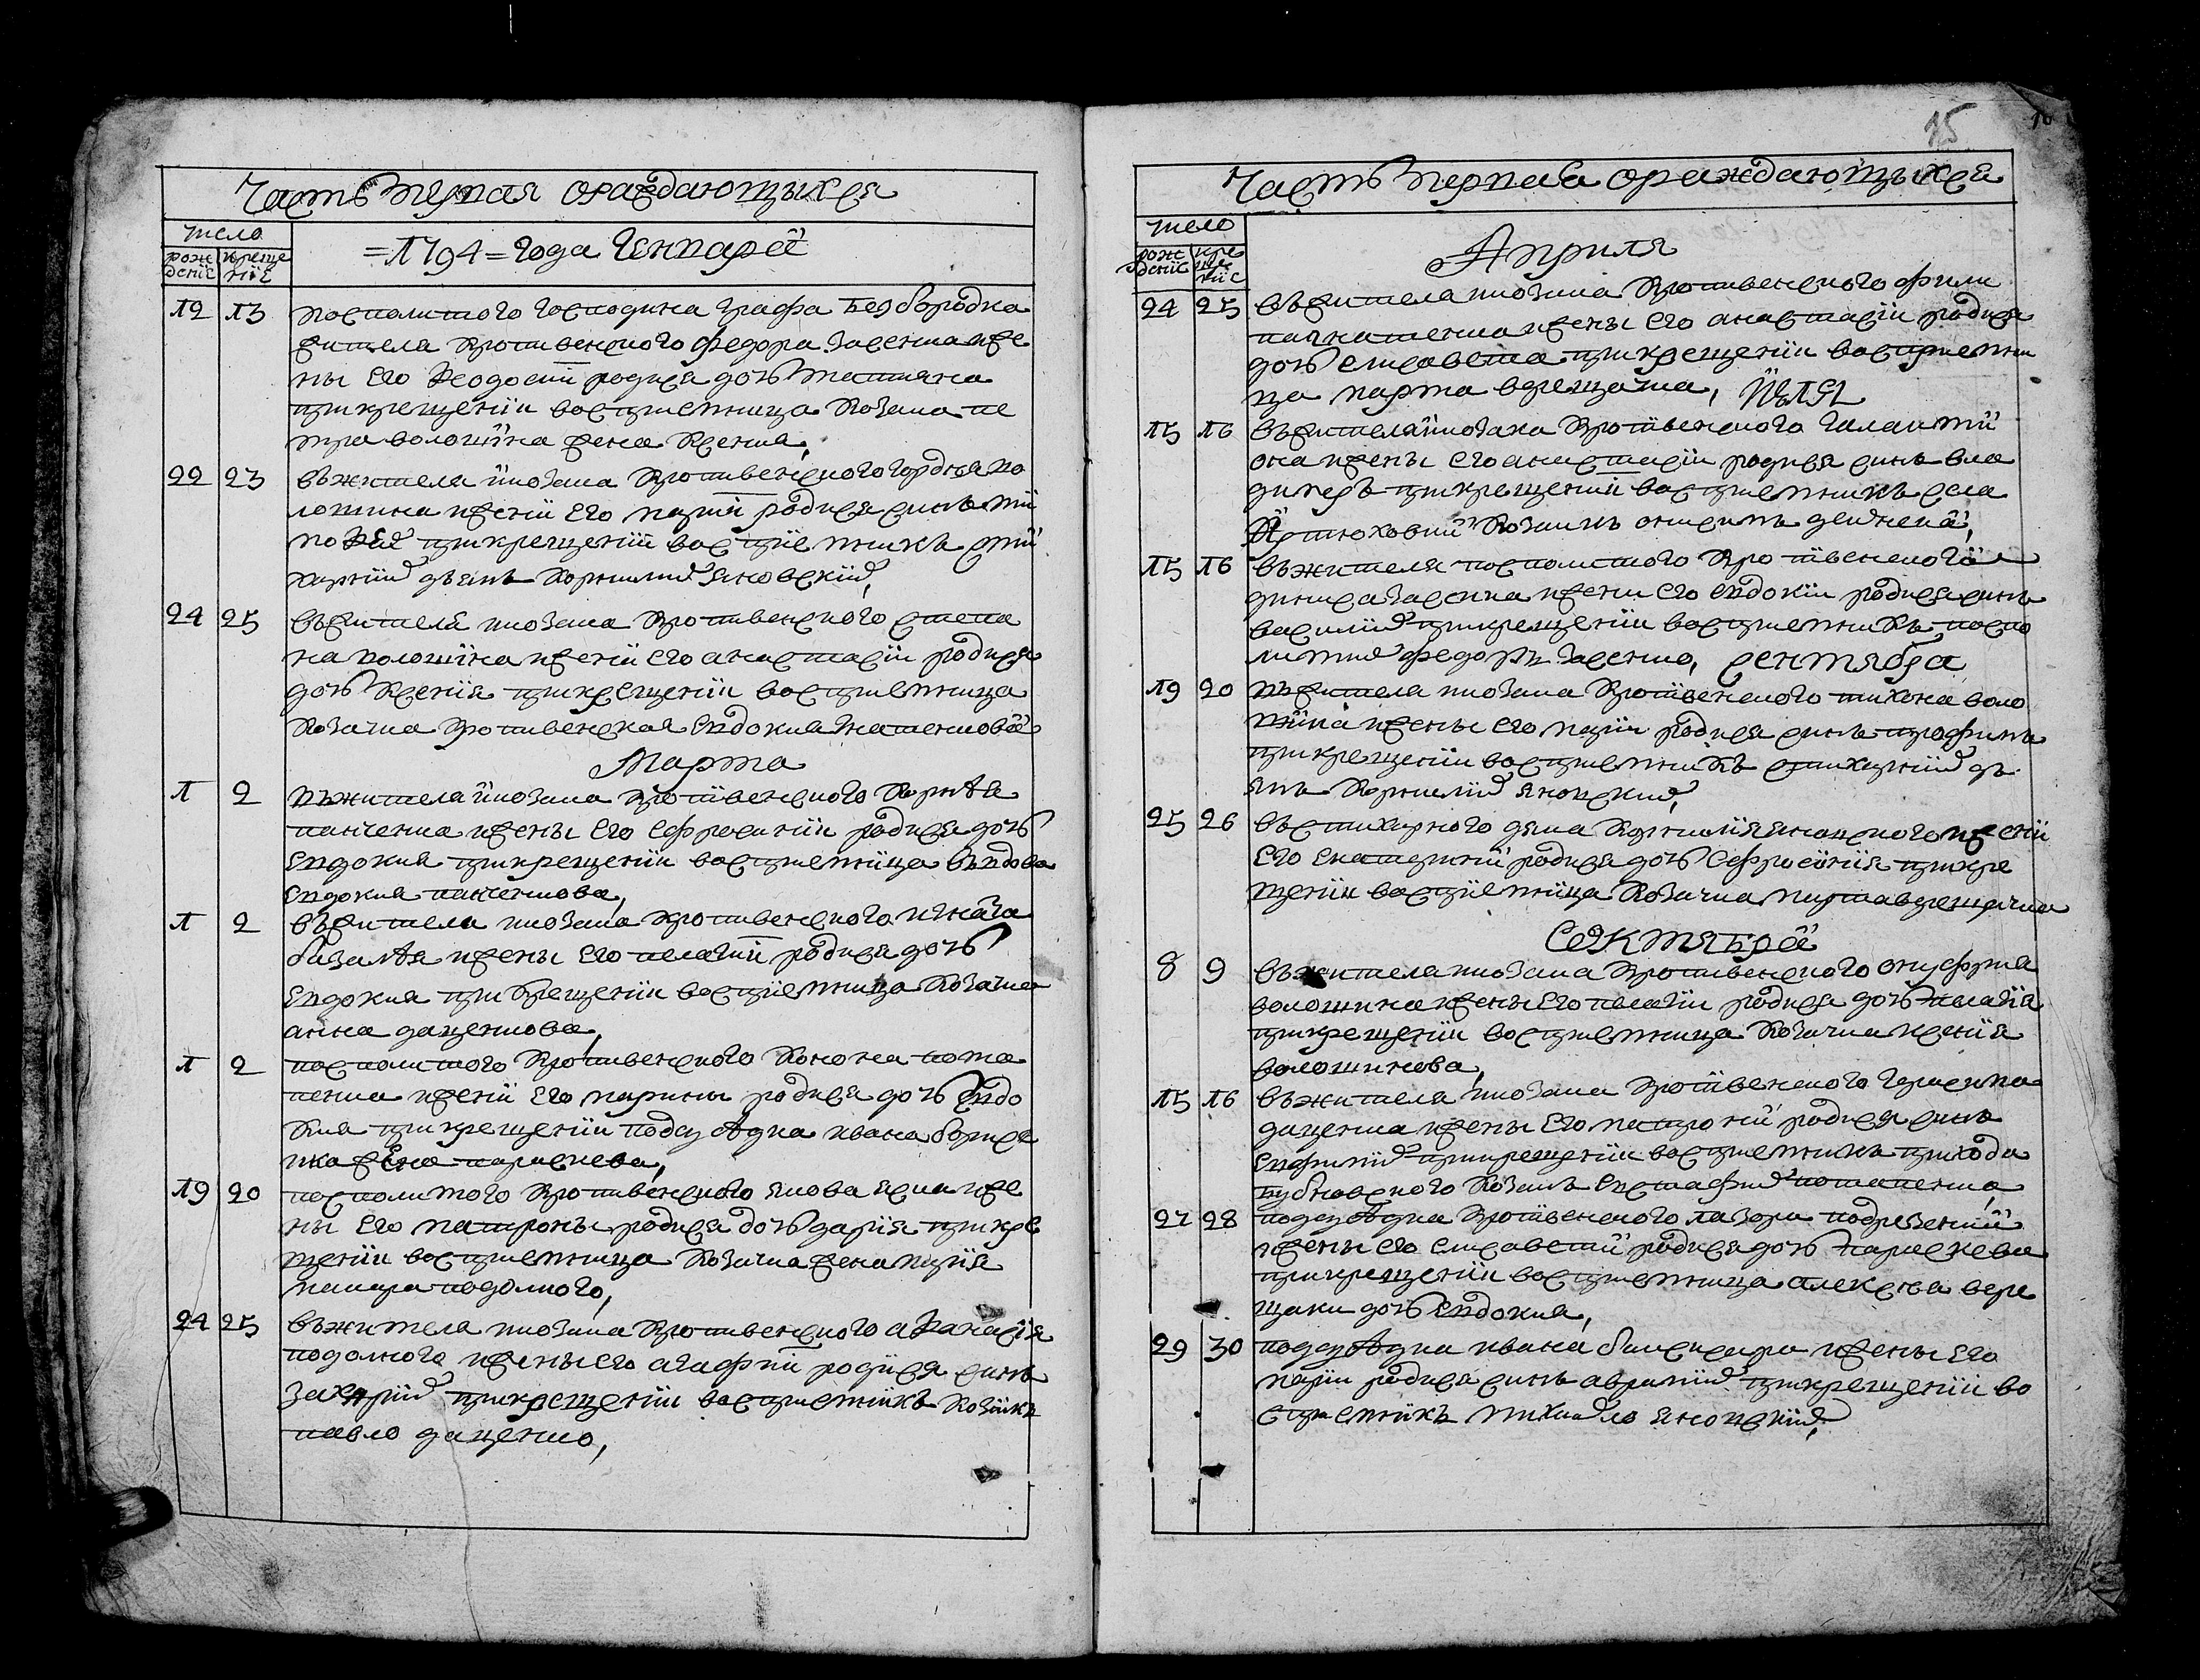 Часть первая ораждающыхся
число
рож
дение
креще
ние
=1794= года Генваря
12 13 посполитого господина графа Безбородка
жителя Кротивенского федора Заенка же
ны его Феодосіи родися дочь татияна
при крещеніи восприемница козака пе
тра волошина жена Ксения,
22 23 въ жителя и козака Кротивенского гордѣя во
лошина и жени его маріи родися синъ ти
мофей при крещеніи восприемникъ сти
харний дьякъ Корнилий Яновский,
24 25 въ жителя и козака Кротивенского степа
на волошина и жени его анастасіи родися
дочь Ксения при крещеніи восприемница
Козачка Кротивенская Евдокия
Марта
1 2 въ жителя и козака Кротивенского Корнѣя
панченка и жены его Ефросиніи родися дочь
Евдокия при крещеніи восприемница вдова
Евдокия панченкова,
1 2 въ жителя и козака Кротивенского
и жены его пелагіи родися дочь
Евдокия при крещеніи восприемница Козачка
анна даценкова,
1 2 посполитого Кротивенского Конона пота
пенка и жени его марины родися дочь Евдо
кия при крещеніи подсусѣдка ивана борися
жена параскева,
19 20 посполитого Кротивенского якова и же
ны его матроны родися дочь дария при кре
щеніи восприемница Козачка жена мария
макара подолного,
24 25 въ жителя и козака Кротивенского афанасия
подолного и жены его агафіи родися синъ
Захарий при крещеніи восприемникъ Козакъ
павло даценко,
15
Часть первая ораждающыхся
число
рож
дение
кре
ще
ние
Априля
24 25 въ жителя и козака Кротивенского фили
и жены его анастасіи родися
дочь елисавета при крещеніи восприемни
ца марта верещачка, Июля
15 16 въ жителя и козака Кротивенского
она и жены его анастасіи родися синъ вла
димеръ при крещеніи восприемникъ села
Козакъ онисимъ
15 16 въ жителя посполитого Кротивенского
Заенка и жени его евдокіи родися синъ
василий при крещеніи восприемникъ поспо
литий федоръ Заенко, сентября
19 20 въ жителя и козака Кротивенского тихона воло
шина и жены его маріи родися синъ трофимъ
при крещеніи восприемникъ стихарний дь
якъ Корнилий яновский,
25 26 въ стихарного дяка Корнилия яновского и жени
его екатерини родися дочь Ефросиния при кре
щеніи восприемница Козачка марта верещачка
Октября
8 9 въ жителя и козака Кротивенского онуфрия
волошина и жены его пелагіи родися дочь пелагия
при крещеніи восприемница Козачка ксения
волошинова,
15 16 въ жителя и козака Кротивенского герасима
даценка и жены его матрони родися синъ
Евфимий при крещеніи восприемникъ прихода
Козакъ Евстафий потапенко,
27 28 подсусѣдка Кротивенского лазара
и жены его елисавети родися дочь параскева
при крещеніи восприемница алексѣя вере
щаки дочь Евдокия,
29 30 подсусѣдка ивана и жены его
маріи родися синъ аврамий при крещеніи во
сприемникъ михайло яновский,